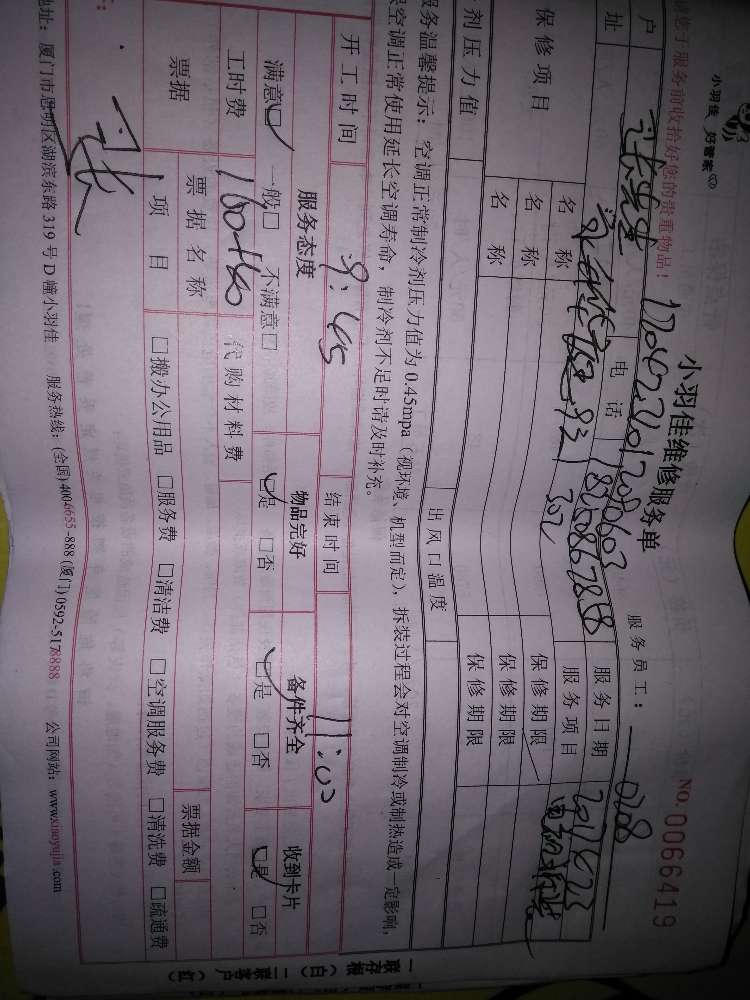 小羽佳 好管家
小羽佳维修服务单
服务员工： 0208
No. 0066419
服务前收拾好您的贵重物品！
户
电 话
服务日期
址
服务项目
保修项目
名 称
保修期限
名 称
保修期限
名 称
保修期限
剂压力值
出风口温度
服务温馨提示：空调正常制冷剂压力值为0.45mpa（视环境、机型而定），拆装过程会对空调制冷或制热造成一定影响，
空调正常使用延长空调寿命，制冷剂不足时请及时补充。
开工时间 9:45 结束时间 11:00
服务态度 物品完好 备件齐全 收到卡片
满意□ 一般□ 不满意□ □是 □否 □是 □否 □是 □否
工时费 160+40 代购材料费
票据 票据名称 票据金额
项 目 □搬办公用品 □服务费 □清洁费 □空调服务费 □清洗费 □疏通费
张
地址：厦门市思明区湖滨东路 319 号 D 幢小羽佳 服务热线：(全国)4006655-888 (厦门)0592-5178888 公司网站：www.xiaoyujia.com
一联存根（白） 二联客户（红）